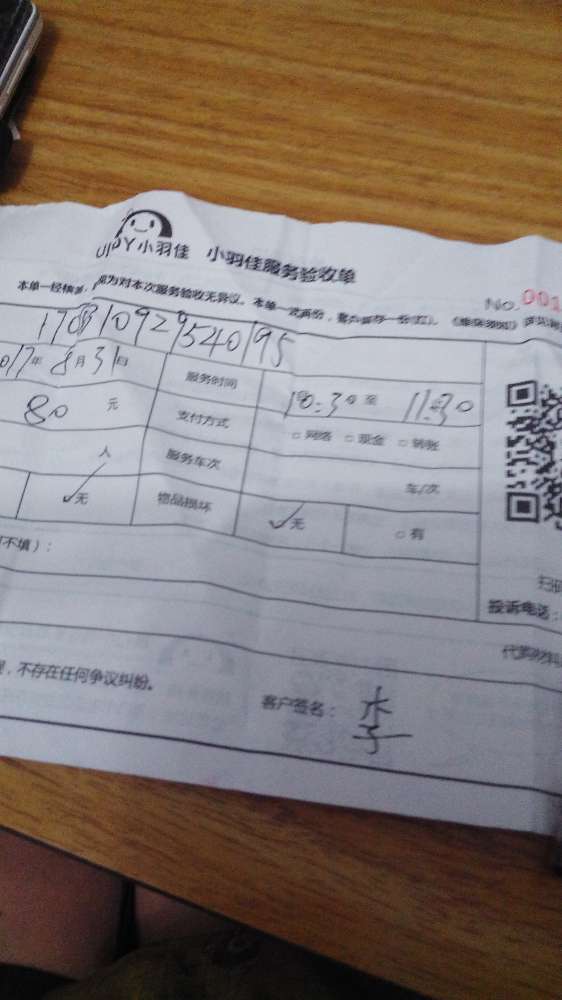 UIPY小羽佳 小羽佳服务验收单
No.001
本单一经核多，视为对本次服务验收无异议。本单一式两份，客户留存一份
017年8月31日 服务时间 10:30至11:30
80元 支付方式 □网络 □现金 □转账
人 服务车次 车/次
✓无 物品损坏 ✓无 □有
不填）：
扫码
投诉电话：
，不存在任何争议纠纷。
客户签名：李